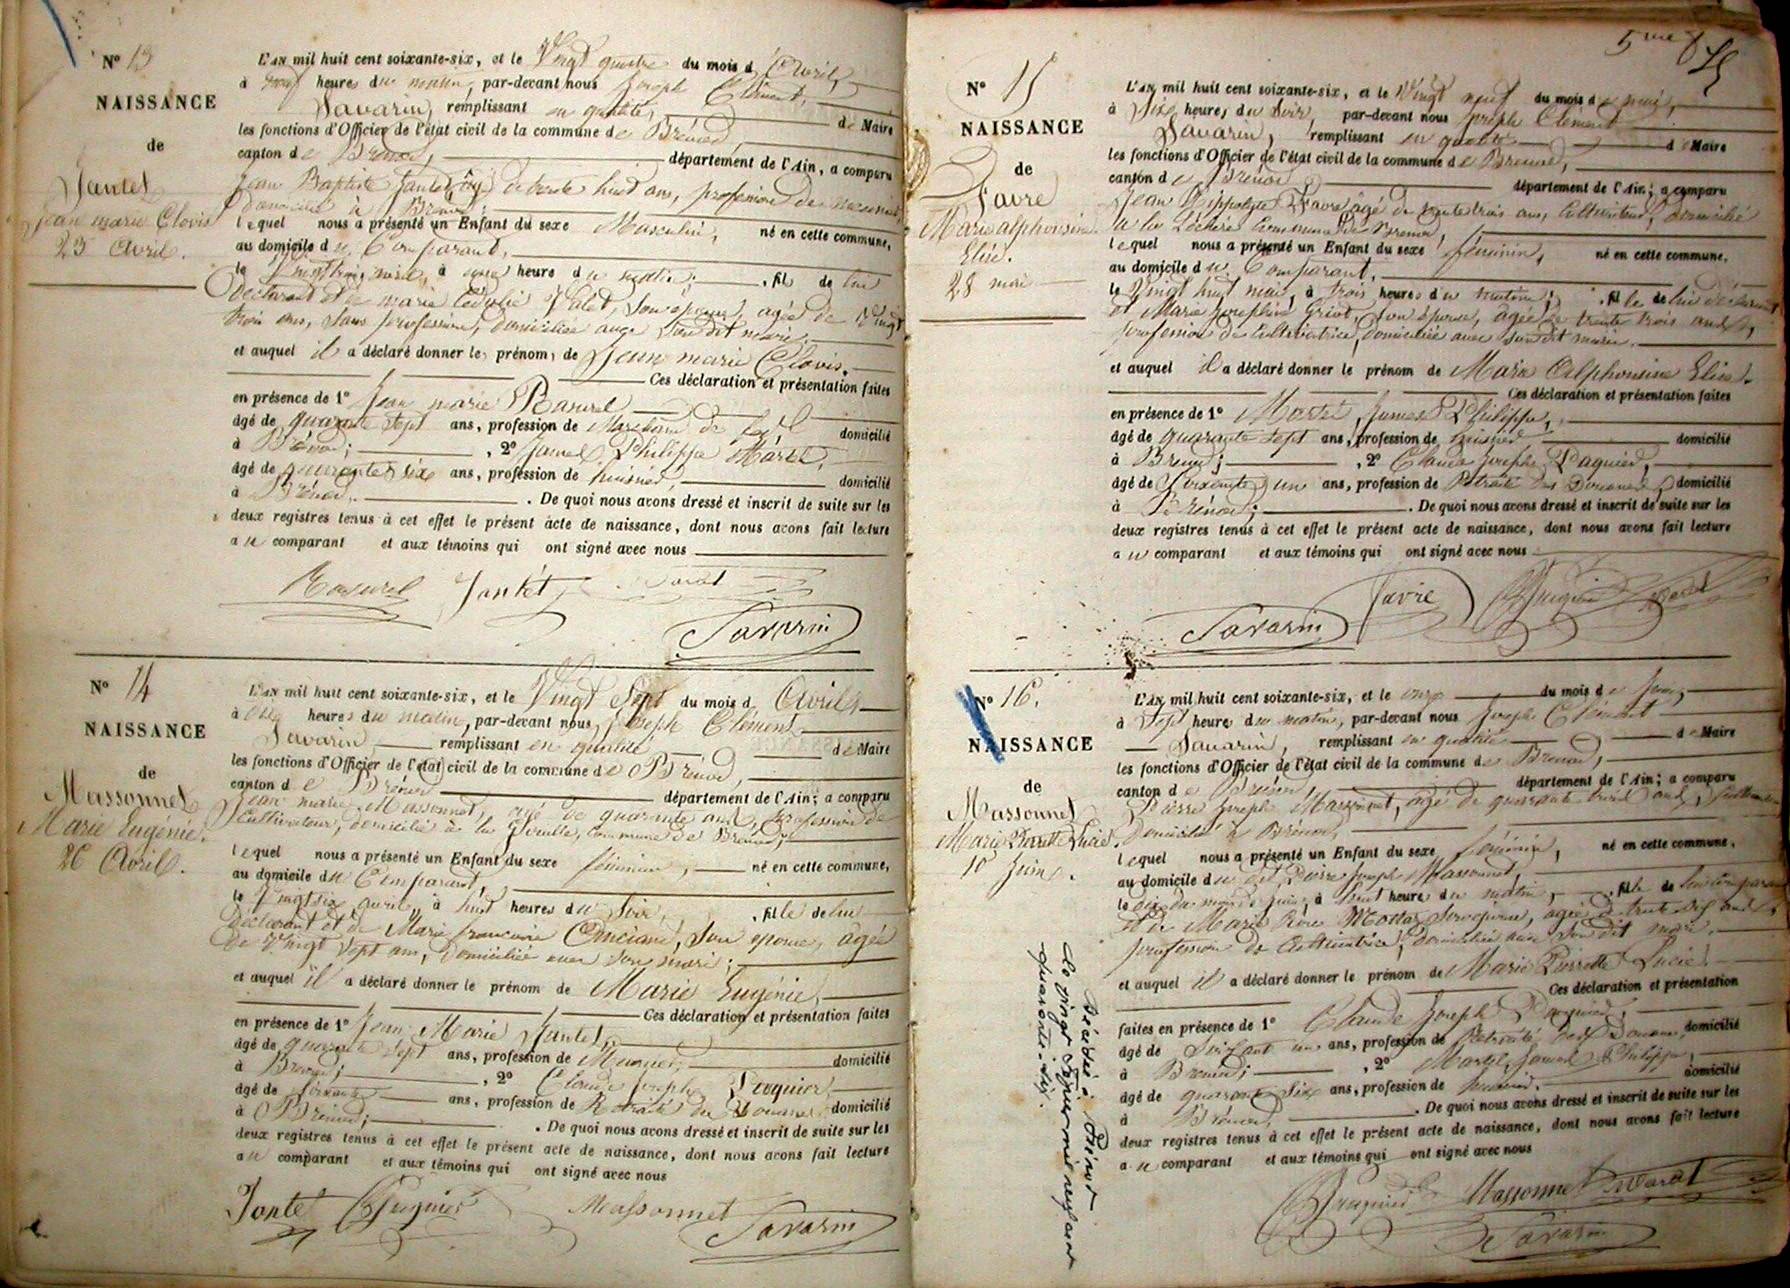 N° 13
NAISSANCE
de
Jantet
Jean marie Clovis
23 Avril.
L'AN mil huit cent soixante-six, et le Vingt quatre du mois d'Avril,
à neuf heures du matin, par-devant nous Joseph Clément,
Savarin, remplissant en qualité, de Maire
les fonctions d'Officier de l'état civil de la commune de Brénod
canton de Brénod, département de l'Ain, a comparu
Jean Baptiste Jantet âgé de trente huit ans, profession de
domicilié à Brénod;
lequel nous a présenté un Enfant du sexe Masculin, né en cette commune,
au domicile du Comparant,
le Vingt trois avril, à heure du matin; fils de lui
déclarant et de marie Valet, son épouse, agée de Vingt
trois ans, sans profession, domiciliée avec son dit mari.
et auquel il a déclaré donner les prénoms de Jean marie Clovis.
Ces déclaration et présentation faites
en présence de 1° Jean marie
âgé de quarante sept ans, profession de Marchand de domicilié
à Brénod; , 2° James Philippe Martel,
âgé de quarante six ans, profession de huissier, domicilié
à Brénod. . De quoi nous avons dressé et inscrit de suite sur les
deux registres tenus à cet effet le présent acte de naissance, dont nous avons fait lecture
au comparant et aux témoins qui ont signé avec nous
Jantet
Savarin
N° 14
NAISSANCE
de
Massonnet
Marie Eugénie.
26 Avril.
L'AN mil huit cent soixante-six, et le Vingt Sept du mois d'Avril,
à heures du matin, par-devant nous Joseph Clément
Savarin remplissant en qualité de Maire
les fonctions d'Officier de l'état civil de la commune de Brénod,
canton de Brénod département de l'Ain; a comparu
Jean marie Massonnet, agé de quarante ans, profession de
Cultivateur, domicilié à la commune de Brénod;
lequel nous a présenté un Enfant du sexe féminin, né en cette commune,
au domicile du Comparant,
le Vingt six avril, à huit heures du Soir, fille de lui
déclarant et de Marie françoise son épouse, agée
de Vingt Sept ans, domiciliée avec son mari;
et auquel il a déclaré donner le prénom de Marie Eugénie,
Ces déclaration et présentation faites
en présence de 1° Jean Marie Jantet,
âgé de quarante sept ans, profession de domicilié
à Brénod; , 2° Claude Joseph
âgé de soixante ans, profession de Retraité des Douanes domicilié
à Brénod; . De quoi nous avons dressé et inscrit de suite sur les
deux registres tenus à cet effet le présent acte de naissance, dont nous avons fait lecture
au comparant et aux témoins qui ont signé avec nous
Jantet Massonnet
Savarin
5me
N° 15
NAISSANCE
de
Favre
Marie alphonsine
Elise.
28 mai
L'AN mil huit cent soixante-six, et le Vingt neuf du mois de mai,
à heures du Soir, par-devant nous Joseph Clément
Savarin, remplissant en qualité de Maire
les fonctions d'Officier de l'état civil de la commune de Brénod,
canton de Brénod département de l'Ain; a comparu
Jean hippolyte Favre agé de trente trois ans, Cultivateur, domicilié
Commune de Brénod,
lequel nous a présenté un Enfant du sexe féminin, né en cette commune,
au domicile du Comparant.
le Vingt huit mai, à trois heures du matin; fille de lui déclarant
et Marie Joséphine son épouse, agée de trente trois ans,
profession de Cultivatrice, domiciliée avec son dit mari.
et auquel il a déclaré donner le prénom de Marie Alphonsine Elise.
Ces déclaration et présentation faites
en présence de 1° Martel James Philippe,
âgé de quarante sept ans, profession de huissier domicilié
à Brénod; , 2° Claude Joseph
âgé de Soixante un ans, profession de Retraité des Douanes, domicilié
à Brénod; . De quoi nous avons dressé et inscrit de suite sur les
deux registres tenus à cet effet le présent acte de naissance, dont nous avons fait lecture
au comparant et aux témoins qui ont signé avec nous
Favre
Savarin
N° 16.
NAISSANCE
de
Massonnet
Marie Pierrette Lucie.
10 Juin.
L'AN mil huit cent soixante-six, et le onze du mois de Juin,
à Sept heures du matin, par-devant nous Joseph Clément
Savarin, remplissant en qualité de Maire
les fonctions d'Officier de l'état civil de la commune de Brénod,
canton de Brénod, département de l'Ain; a comparu
Pierre Joseph Massonnet, agé de quarante ans,
domicilié à Brénod,
lequel nous a présenté un Enfant du sexe féminin, né en cette commune,
au domicile du dit Pierre Joseph Massonnet,
le dix du mois de juin, à huit heures du matin, fille de lui comparant
et de Marie Rose agée de trente ans,
profession de Cultivatrice, domiciliée avec son dit mari.
et auquel il a déclaré donner le prénom de Marie Pierrette Lucie.
Ces déclaration et présentation
faites en présence de 1° Claude Joseph
âgé de Soixante un ans, profession de Retraité des Douanes, domicilié
à Brénod; , 2° Martel James Philippe,
âgé de quarante Six ans, profession de huissier, domicilié
à Brénod, . De quoi nous avons dressé et inscrit de suite sur les
deux registres tenus à cet effet le présent acte de naissance, dont nous avons fait lecture
au comparant et aux témoins qui ont signé avec nous
Massonnet
Savarin
Décédée à Brénod
le vingt février mil neuf cent
quarante-six.